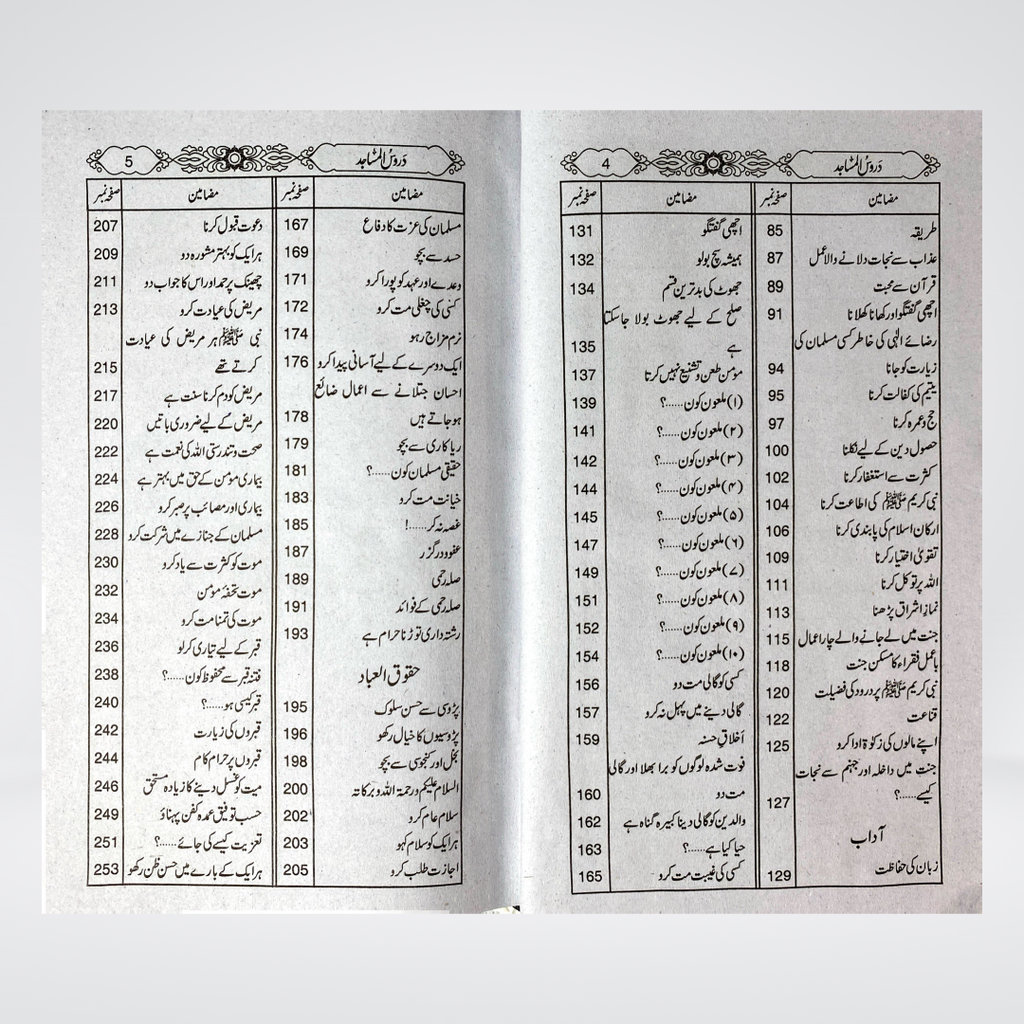 دروس المساجد 4
مضامین صفحہ نمبر
طریقہ 85
عذاب سے نجات دلانے والا عمل 87
قرآن سے محبت 89
اچھی گفتگو اور کھانا کھلانا 91
رضائے الٰہی کی خاطر کسی مسلمان کی
زیارت کو جانا 94
یتیم کی کفالت کرنا 95
حج و عمرہ کرنا 97
حصول دین کے لیے نکلنا 100
کثرت سے استغفار کرنا 102
نبی کریم ﷺ کی اطاعت کرنا 104
ارکان اسلام کی پابندی کرنا 106
تقویٰ اختیار کرنا 109
اللہ پر توکل کرنا 111
نماز اشراق پڑھنا 113
جنت میں لے جانے والے چار اعمال 115
باعمل فقراء کا مسکن جنت 118
نبی کریم ﷺ پر درود کی فضیلت 120
قناعت 122
اپنے مالوں کی زکوٰۃ ادا کرو 125
جنت میں داخلہ اور جہنم سے نجات
کیسے......؟ 127
آداب
زبان کی حفاظت 129
مضامین صفحہ نمبر
اچھی گفتگو 131
ہمیشہ سچ بولو 132
جھوٹ کی بدترین قسم 134
صلح کے لیے جھوٹ بولا جاسکتا
ہے 135
مومن طعن و تشنیع نہیں کرتا 137
(۱) ملعون کون......؟ 139
(۲) ملعون کون......؟ 141
(۳) ملعون کون......؟ 142
(۴) ملعون کون......؟ 144
(۵) ملعون کون......؟ 145
(۶) ملعون کون......؟ 147
(۷) ملعون کون......؟ 149
(۸) ملعون کون......؟ 151
(۹) ملعون کون......؟ 152
(۱۰) ملعون کون......؟ 154
کسی کو گالی مت دو 156
گالی دینے میں پہل نہ کرو 157
اخلاقِ حسنہ 159
فوت شدہ لوگوں کو برا بھلا اور گالی
مت دو 160
والدین کو گالی دینا کبیرہ گناہ ہے 162
حیا کیا ہے......؟ 163
کسی کی غیبت مت کرو 165
دروس المساجد 5
مضامین صفحہ نمبر
مسلمان کی عزت کا دفاع 167
حسد سے بچو 169
وعدے اور عہد کو پورا کرو 171
کسی کی چغلی مت کرو 172
نرم مزاج رہو 174
ایک دوسرے کے لیے آسانی پیدا کرو 176
احسان جتلانے سے اعمال ضائع
ہوجاتے ہیں 178
ریاکاری سے بچو 179
حقیقی مسلمان کون......؟ 181
خیانت مت کرو 183
غصہ نہ کر......! 185
عفو و درگزر 187
صلہ رحمی 189
صلہ رحمی کے فوائد 191
رشتہ داری توڑنا حرام ہے 193
حقوق العباد
پڑوسی سے حسن سلوک 195
پڑوسیوں کا خیال رکھو 196
بخل اور کنجوسی سے بچو 198
السلام علیکم ورحمۃ اللہ وبرکاتہ 200
سلام عام کرو 202
ہر ایک کو سلام کہو 203
اجازت طلب کرو 205
مضامین صفحہ نمبر
دعوت قبول کرنا 207
ہر ایک کو بہتر مشورہ دو 209
چھینک پر حمد اور اس کا جواب دو 211
مریض کی عیادت کرو 213
نبی ﷺ ہر مریض کی عیادت
کرتے تھے 215
مریض کو دم کرنا سنت ہے 217
مریض کے لیے ضروری باتیں 220
صحت و تندرستی اللہ کی نعمت ہے 222
بیماری مومن کے حق میں بہتر ہے 224
بیماری اور مصائب پر صبر کرو 226
مسلمان کے جنازے میں شرکت کرو 228
موت کو کثرت سے یاد کرو 230
موت تحفۂ مومن 232
موت کی تمنا مت کرو 234
قبر کے لیے تیاری کرلو 236
فتنہ قبر سے محفوظ کون......؟ 238
قبر کیسی ہو......؟ 240
قبروں کی زیارت 242
قبروں پر حرام کام 244
میت کو غسل دینے کا زیادہ مستحق 246
حسب توفیق عمدہ کفن پہناؤ 249
تعزیت کیسے کی جائے......؟ 251
ہر ایک کے بارے میں حسن ظن رکھو 253